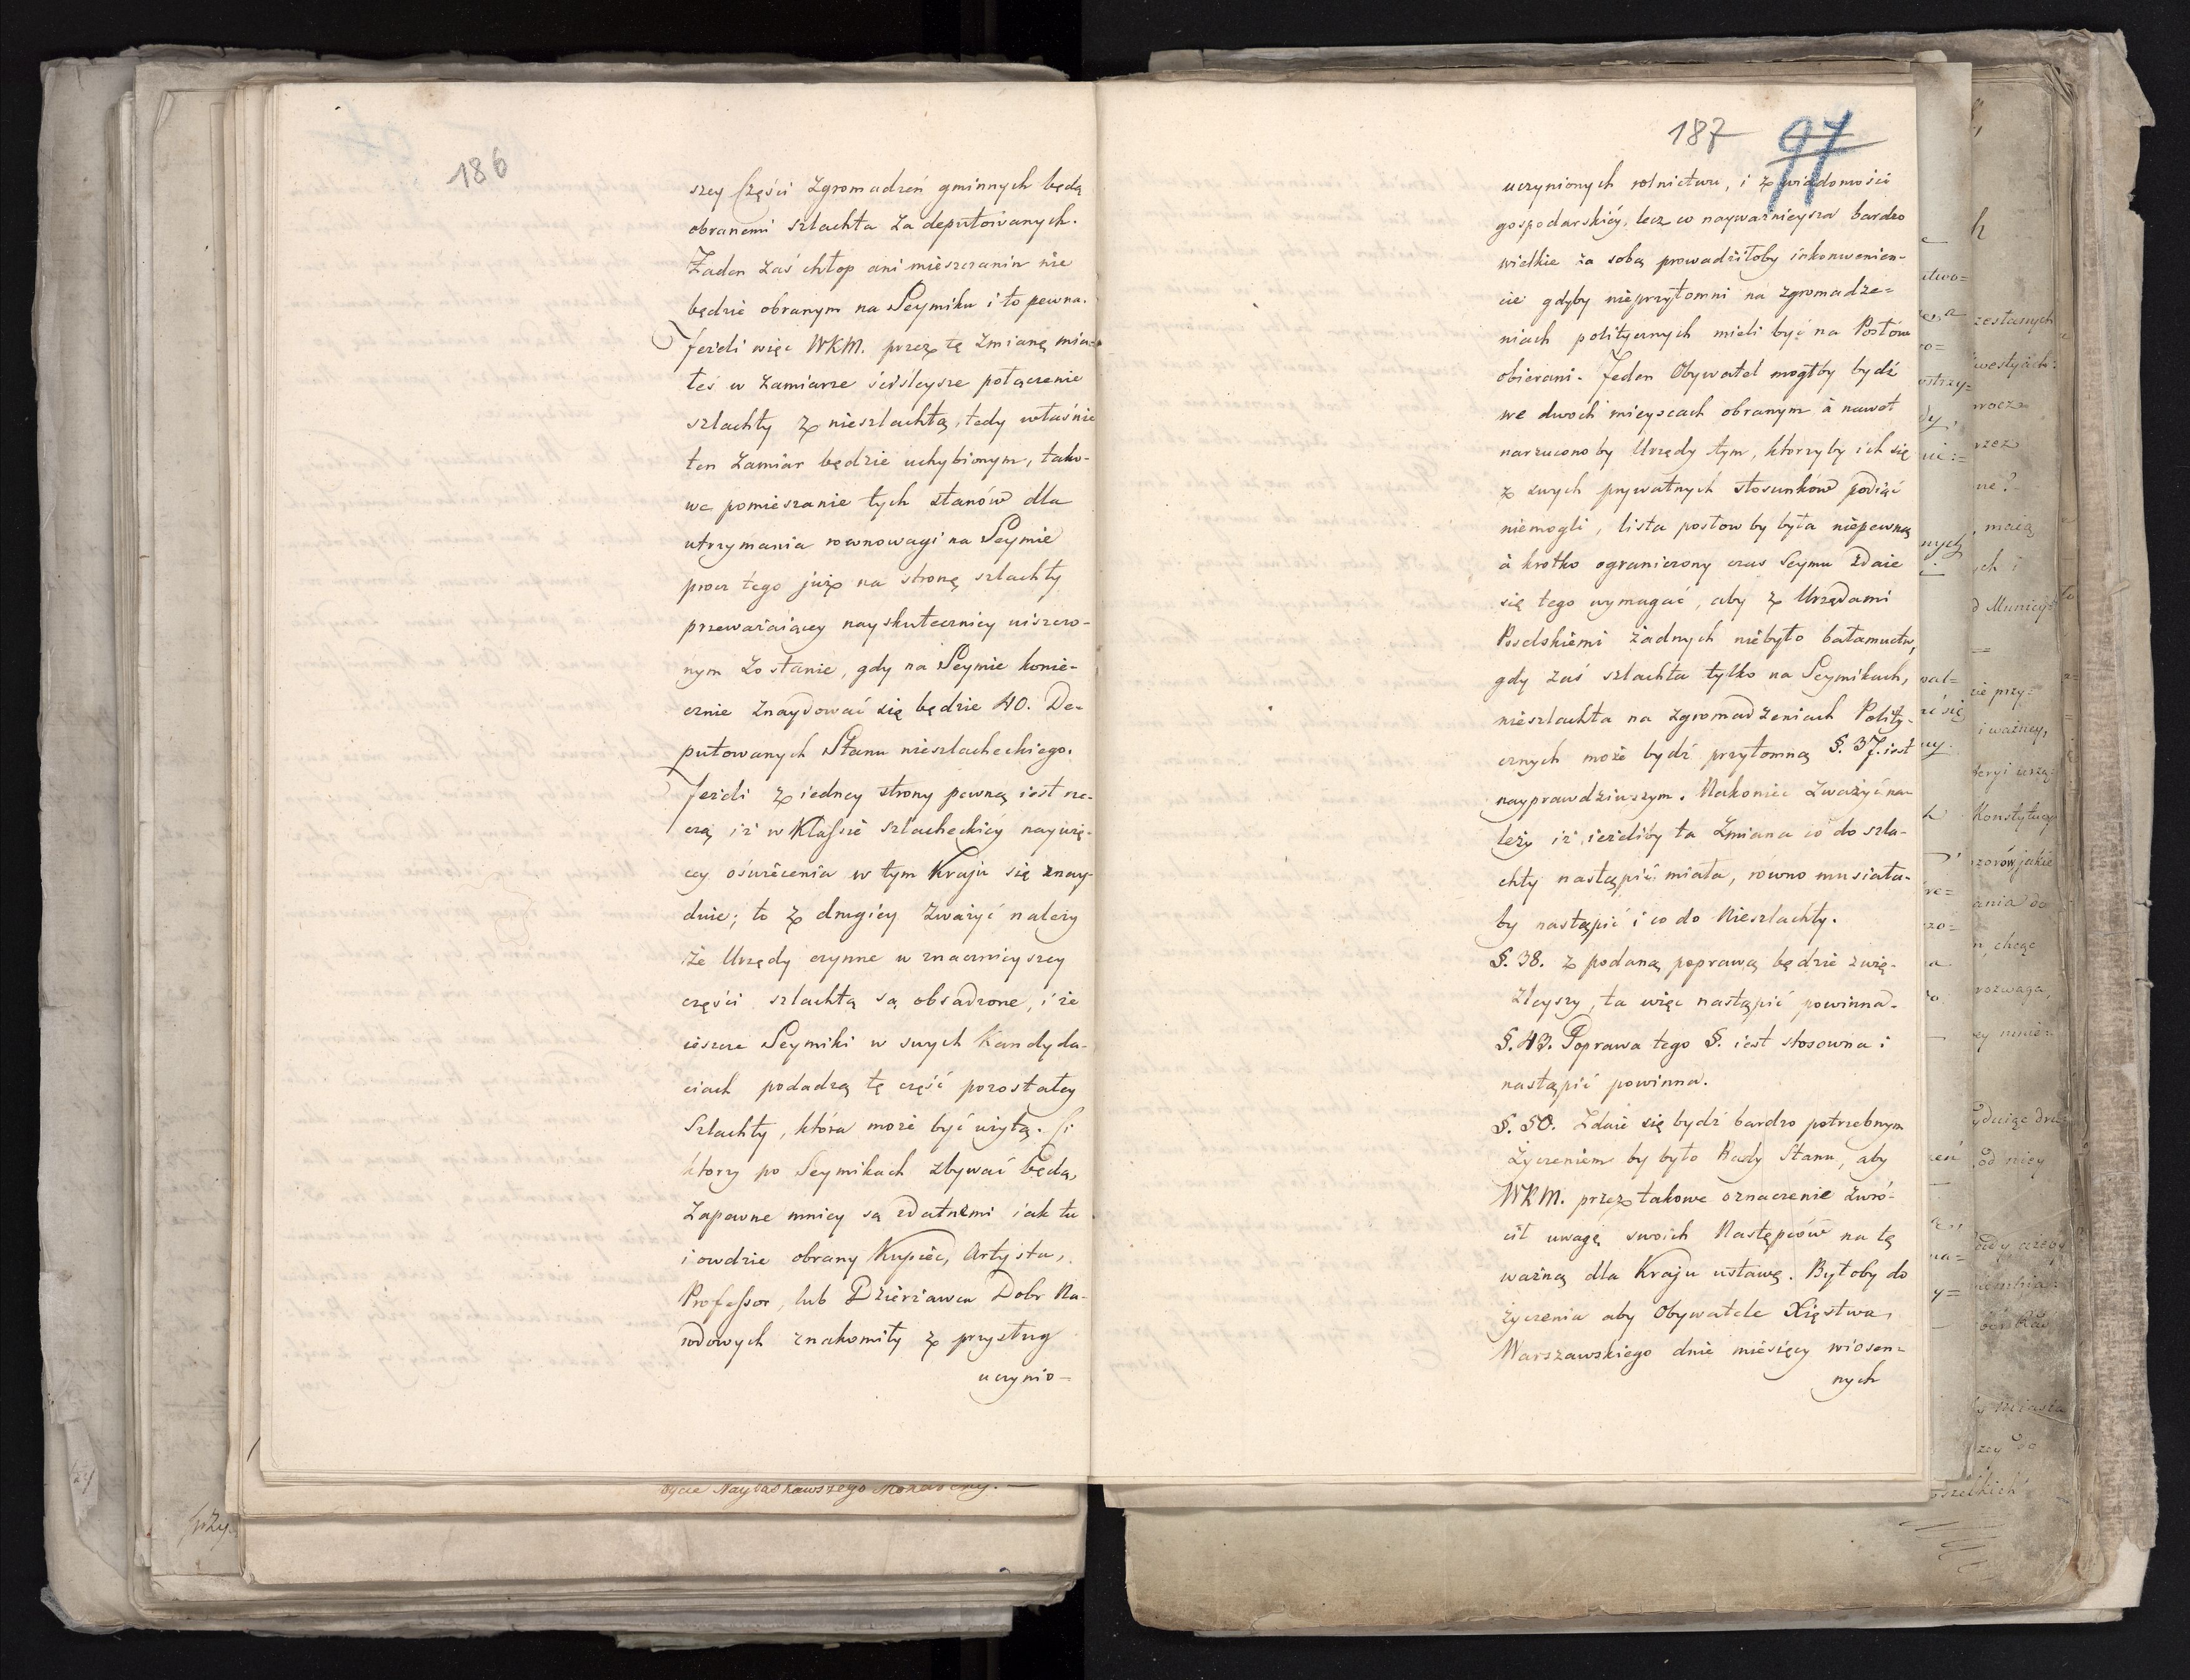 186
szey Części Zgromadzeń gminnych będą
obranemi szlachta za deputowanych.
Żaden zaś chłop ani mieszczanin nie
będzie obranym na Seymiku i to pewna.
Jeżeli więc WKM. przez tę Zmianę mia-
łeś w zamiarze ściśleysze połączenie
szlachty z nieszlachtą, tedy właśnie
ten zamiar będzie uchybionym, tako-
we pomieszanie tych stanów dla
utrzymania rownowagi na Seymie
procz tego już na stronę szlachty
przeważaiącey nayskuteczniey uiszczo-
nym zostanie, gdy na Seymie konie-
cznie znaydować się będzie 40. De-
putowanych Stanu nieszlacheckiego.
Jeżeli z iedney strony pewną iest rze-
czą iż w Klassie szlacheckiéy naywię-
cey oświécenia w tym Kraju się znay-
duie; to z drugiéy zważyć należy
że Urzędy czynne w znacznieyszey
części szlachtą są obsadzone, i że
ieszcze Seymiki w swych Kandyda-
ciach podadzą tę część pozostałey
Szlachty, która może być użytą. Ci
ktorzy po Seymikach zbywać będą,
zapewne mniey są zdatnemi iak tu
i owdzie obrany Kupiéc, Artysta,
Professor, lub Dzierżawca Dobr Na-
rodowych znakomity z przysług
uczynio=
187 97
uczynionych rolnictwu, i z wiadomości
gospodarskiéy, lecz co nayważnieysza bardzo
wielkie za sobą prowadziłoby inkonwenien-
cie gdyby nieprzytomni na zgromadze=
niach politycznych mieli być na Posłów
obierani. Jeden Obywatel mogłby bydź
we dwoch mieyscach obranym à nawet
narzuconoby Urzędy tym, ktorzyby ich się
z swych prywatnych stosunków podiąć
niemogli, lista posłow by była niepewną
à krotko ograniczony czas Seymu zdaie
się tego wymagać, aby z Urzędami
Poselskiemi żadnych niebyło bałamuctw,
gdy zaś szlachta tylko na Seymikach,
nieszlachta na zgromadzeniach Polity-
cznych może bydź przytomną §. 37. iest
nayprawdziwszym. Nakoniec zważyć na-
leży iż ieżeliby ta Zmiana co do szla-
chty nastąpić miała, równo musiała-
by nastąpić i co do Nieszlachty.
§. 38. z podaną poprawą będzie zwię-
źleyszy, ta więc nastąpić powinna.
§. 43. Poprawa tego §. iest stosowna i
nastąpić powinna.
§. 50. Zdaie się bydź bardzo potrzebnym
Życzeniem by było Rady Stanu, aby
WKM. przez takowe oznaczenie zwró-
cił uwagę swoich Następców na tę
ważną dla Kraju ustawę. Byłoby do
życzenia aby Obywatele Xięstwa
Warszawskiego dnie miésięcy wiosen=
nych